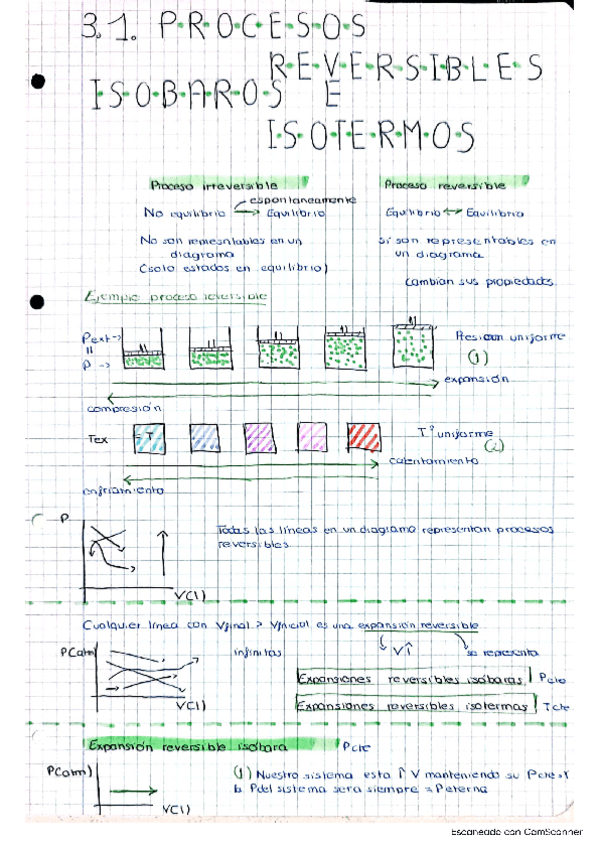 3.1. PROCESOS
REVERSIBLES
ISOBAROS E
ISOTERMOS
Proceso irreversible
Proceso reversible
espontaneamente
No equilibrio → Equilibrio
Equilibrio ↔ Equilibrio
No son represntables en un
diagrama
(solo estados en equilibrio)
si son representables en
un diagrama
Cambian sus propiedades
Ejemplo proceso reversible
Pext →
=
P →
Presion uniforme
(1)
expansión
compresión
Tex
= T
Tª uniforme
(2)
calentamiento
enfriamiento
P
V(l)
Todas las líneas en un diagrama representan procesos
reversibles
Cualquier línea con Vfinal > Vinicial es una expansión reversible
P(atm)
V(l)
infinitas
V↑
se representa
Expansiones reversibles isóbaras Pcte
Expansiones reversibles isotermas Tcte
Expansión reversible isóbara Pcte
P(atm)
V(l)
(1) Nuestro sistema esta ↑ V manteniendo su Pcte
P del sistema sera siempre = Peterna
Escaneado con CamScanner